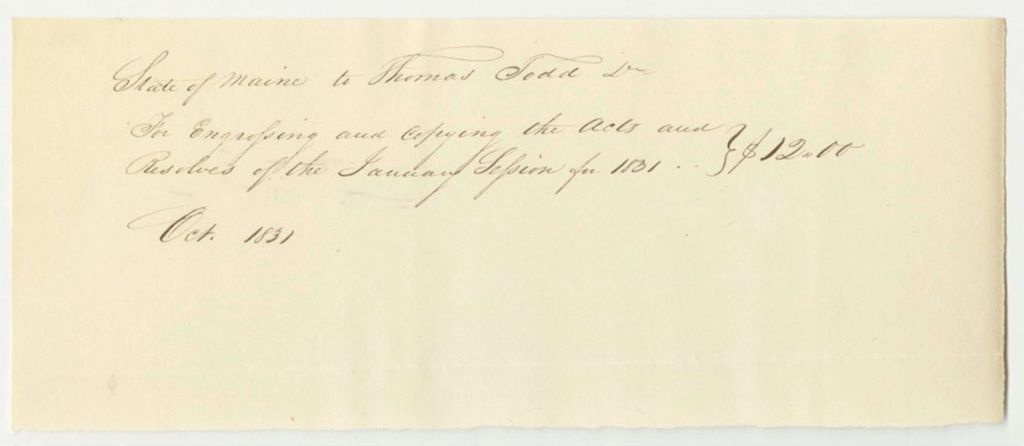 State of Maine to Thomas Todd Dr
For Engrossing and Copying the Acts and
Resolves of the January Session for 1831 . . } $12.00
Oct. 1831